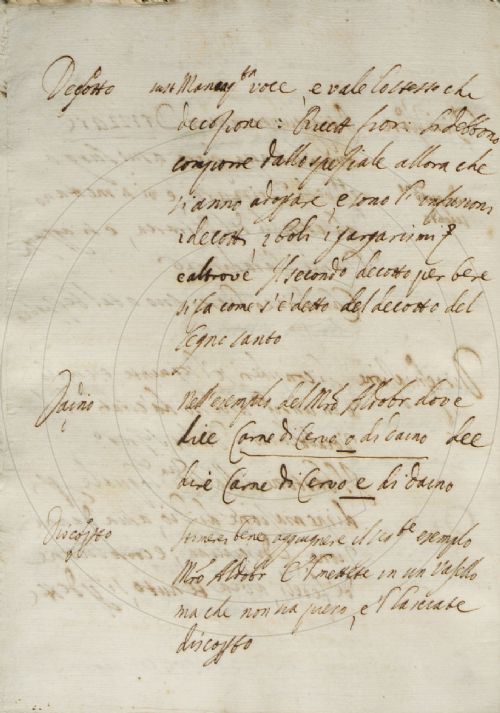 Decotto sust Manca qta voce, e vale lo stesso che
decozione: Ricett fior: si debbono
comporre dallo speziale allora che
si anno adoprare, e sono l'infusioni
i decotti i boli i gargarismi
e altrove Il secondo decotto per bere
si fa come s'è detto del decotto del
legno santo
Daino Nell'esempio del Mro Aldobr. dove
dice Carne di Cervo o di daino dee
dire Carne di Cervo e di daino
Discosto bene aggugnere il seg.te esempio
Mro Aldobr. E l' mettete in un vasello
ma che non sia pieno, e l'
discosto